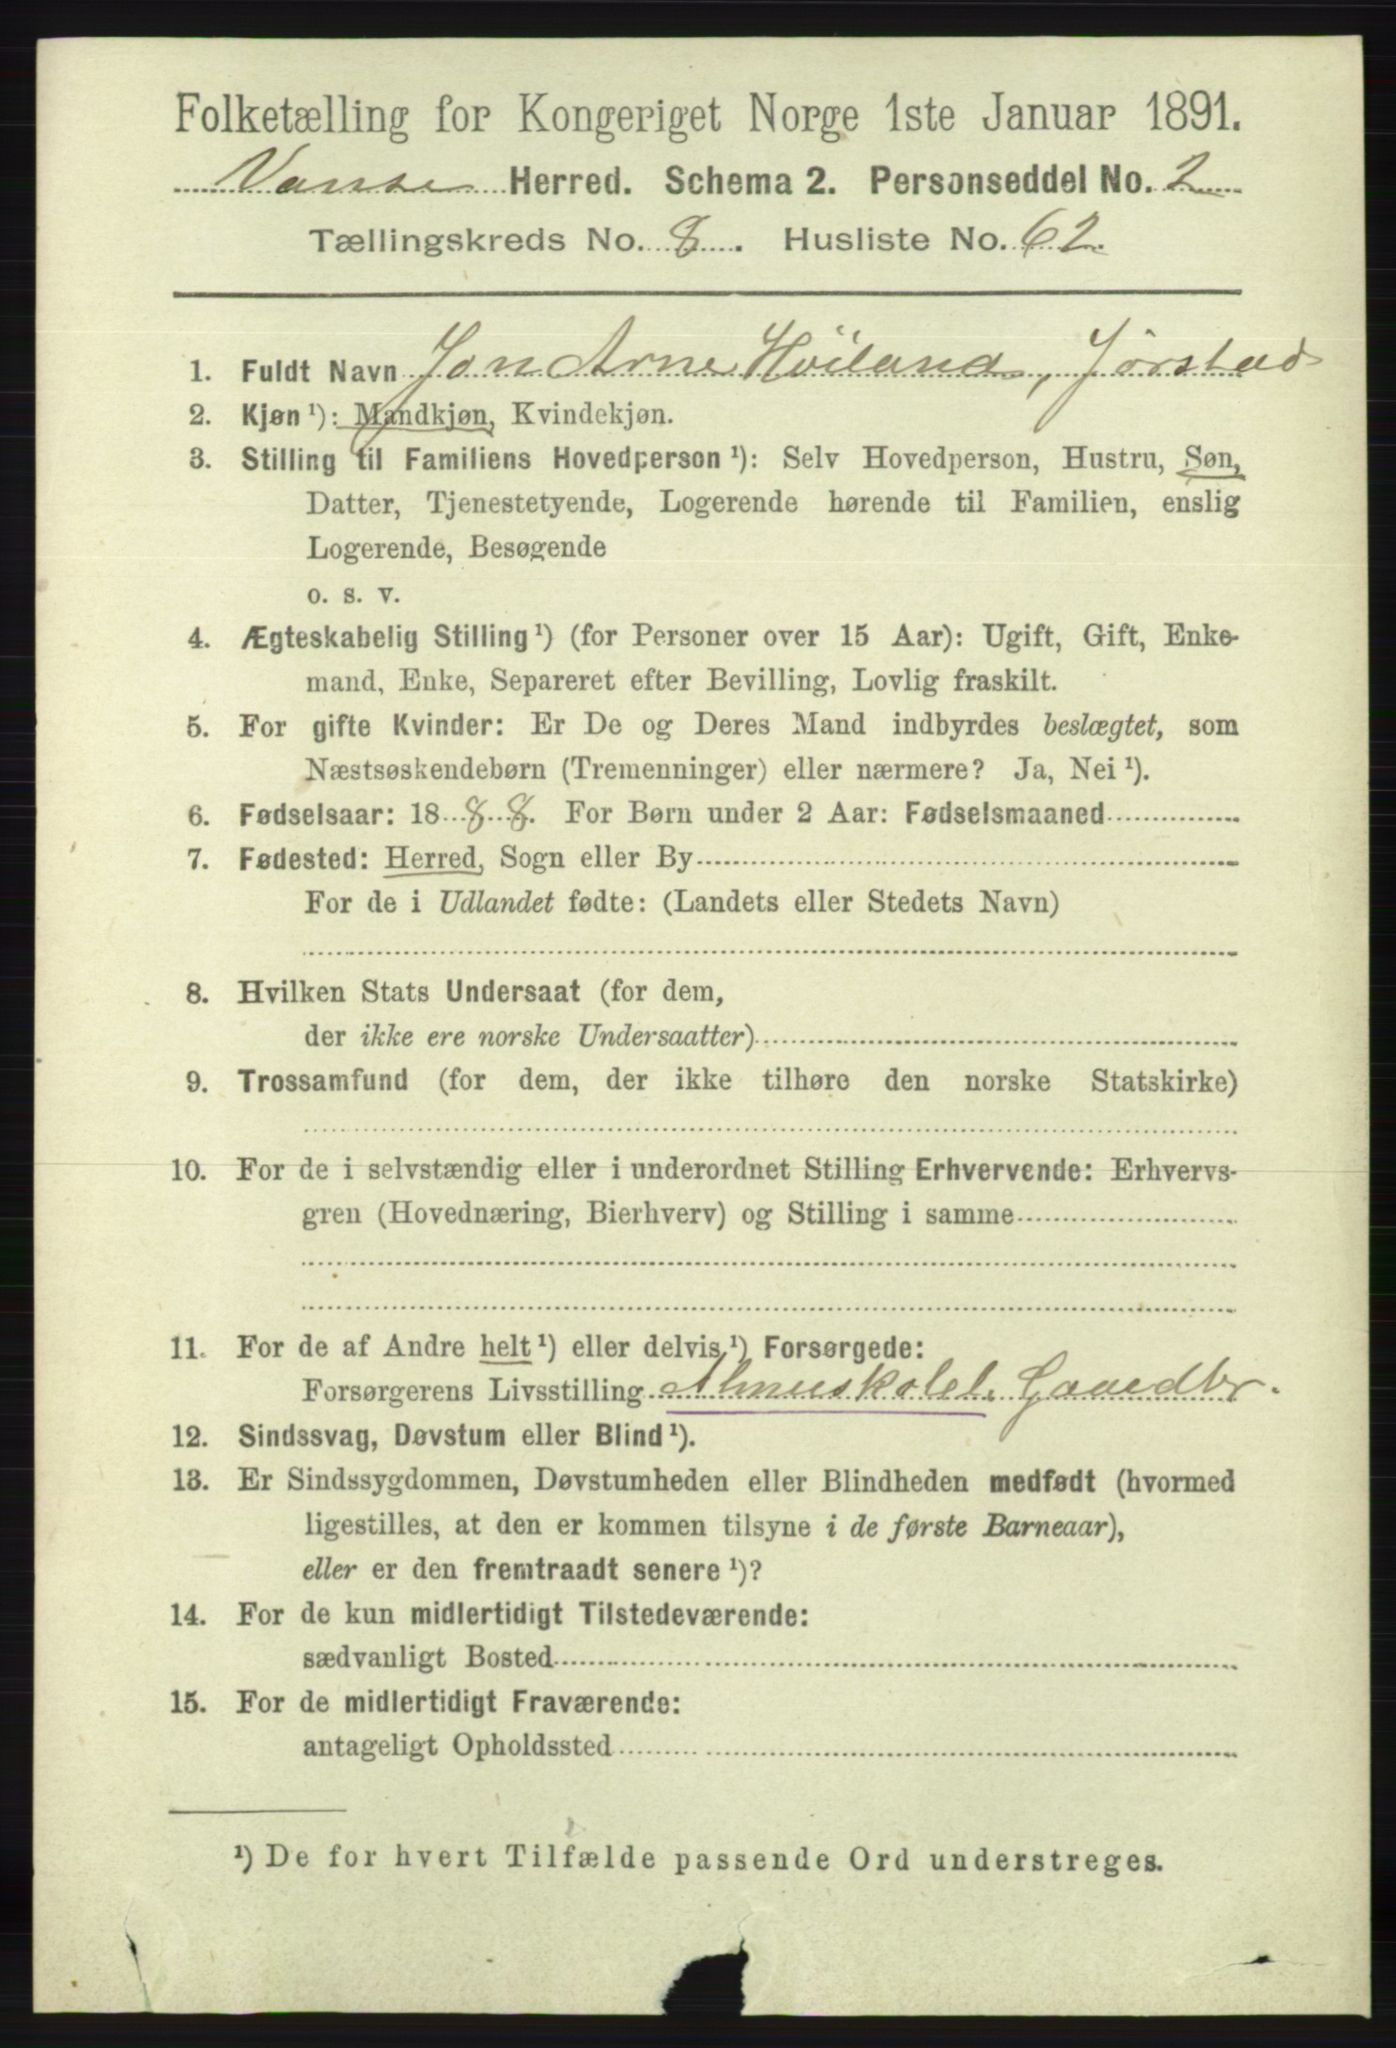 Folketælling for Kongeriget Norge 1ste Januar 1891.
Vanse Herred. Schema 2. Personseddel No. 2
Tællingskreds No. 8. Husliste No. 62.
1. Fuldt Navn Jon Arne Høiland, Jørstad
2. Kjøn ¹): Mandkjøn, Kvindekjøn.
3. Stilling til Familiens Hovedperson ¹): Selv Hovedperson, Hustru, Søn,
Datter, Tjenestetyende, Logerende hørende til Familien, enslig
Logerende, Besøgende
o. s. v.
4. Ægteskabelig Stilling ¹) (for Personer over 15 Aar): Ugift, Gift, Enke-
mand, Enke, Separeret efter Bevilling, Lovlig fraskilt.
5. For gifte Kvinder: Er De og Deres Mand indbyrdes beslægtet, som
Næstsøskendebørn (Tremenninger) eller nærmere? Ja, Nei ¹).
6. Fødselsaar: 1888. For Børn under 2 Aar: Fødselsmaaned
7. Fødested: Herred, Sogn eller By
For de i Udlandet fødte: (Landets eller Stedets Navn)
8. Hvilken Stats Undersaat (for dem,
der ikke ere norske Undersaatter)
9. Trossamfund (for dem, der ikke tilhøre den norske Statskirke)
10. For de i selvstændig eller i underordnet Stilling Erhvervende: Erhvervs-
gren (Hovednæring, Bierhverv) og Stilling i samme
11. For de af Andre helt ¹) eller delvis ¹) Forsørgede:
Forsørgerens Livsstilling Almueskolel. Gaardbr.
12. Sindssvag, Døvstum eller Blind ¹).
13. Er Sindssygdommen, Døvstumheden eller Blindheden medfødt (hvormed
ligestilles, at den er kommen tilsyne i de første Barneaar),
eller er den fremtraadt senere ¹)?
14. For de kun midlertidigt Tilstedeværende:
sædvanligt Bosted
15. For de midlertidigt Fraværende:
antageligt Opholdssted
¹) De for hvert Tilfælde passende Ord understreges.